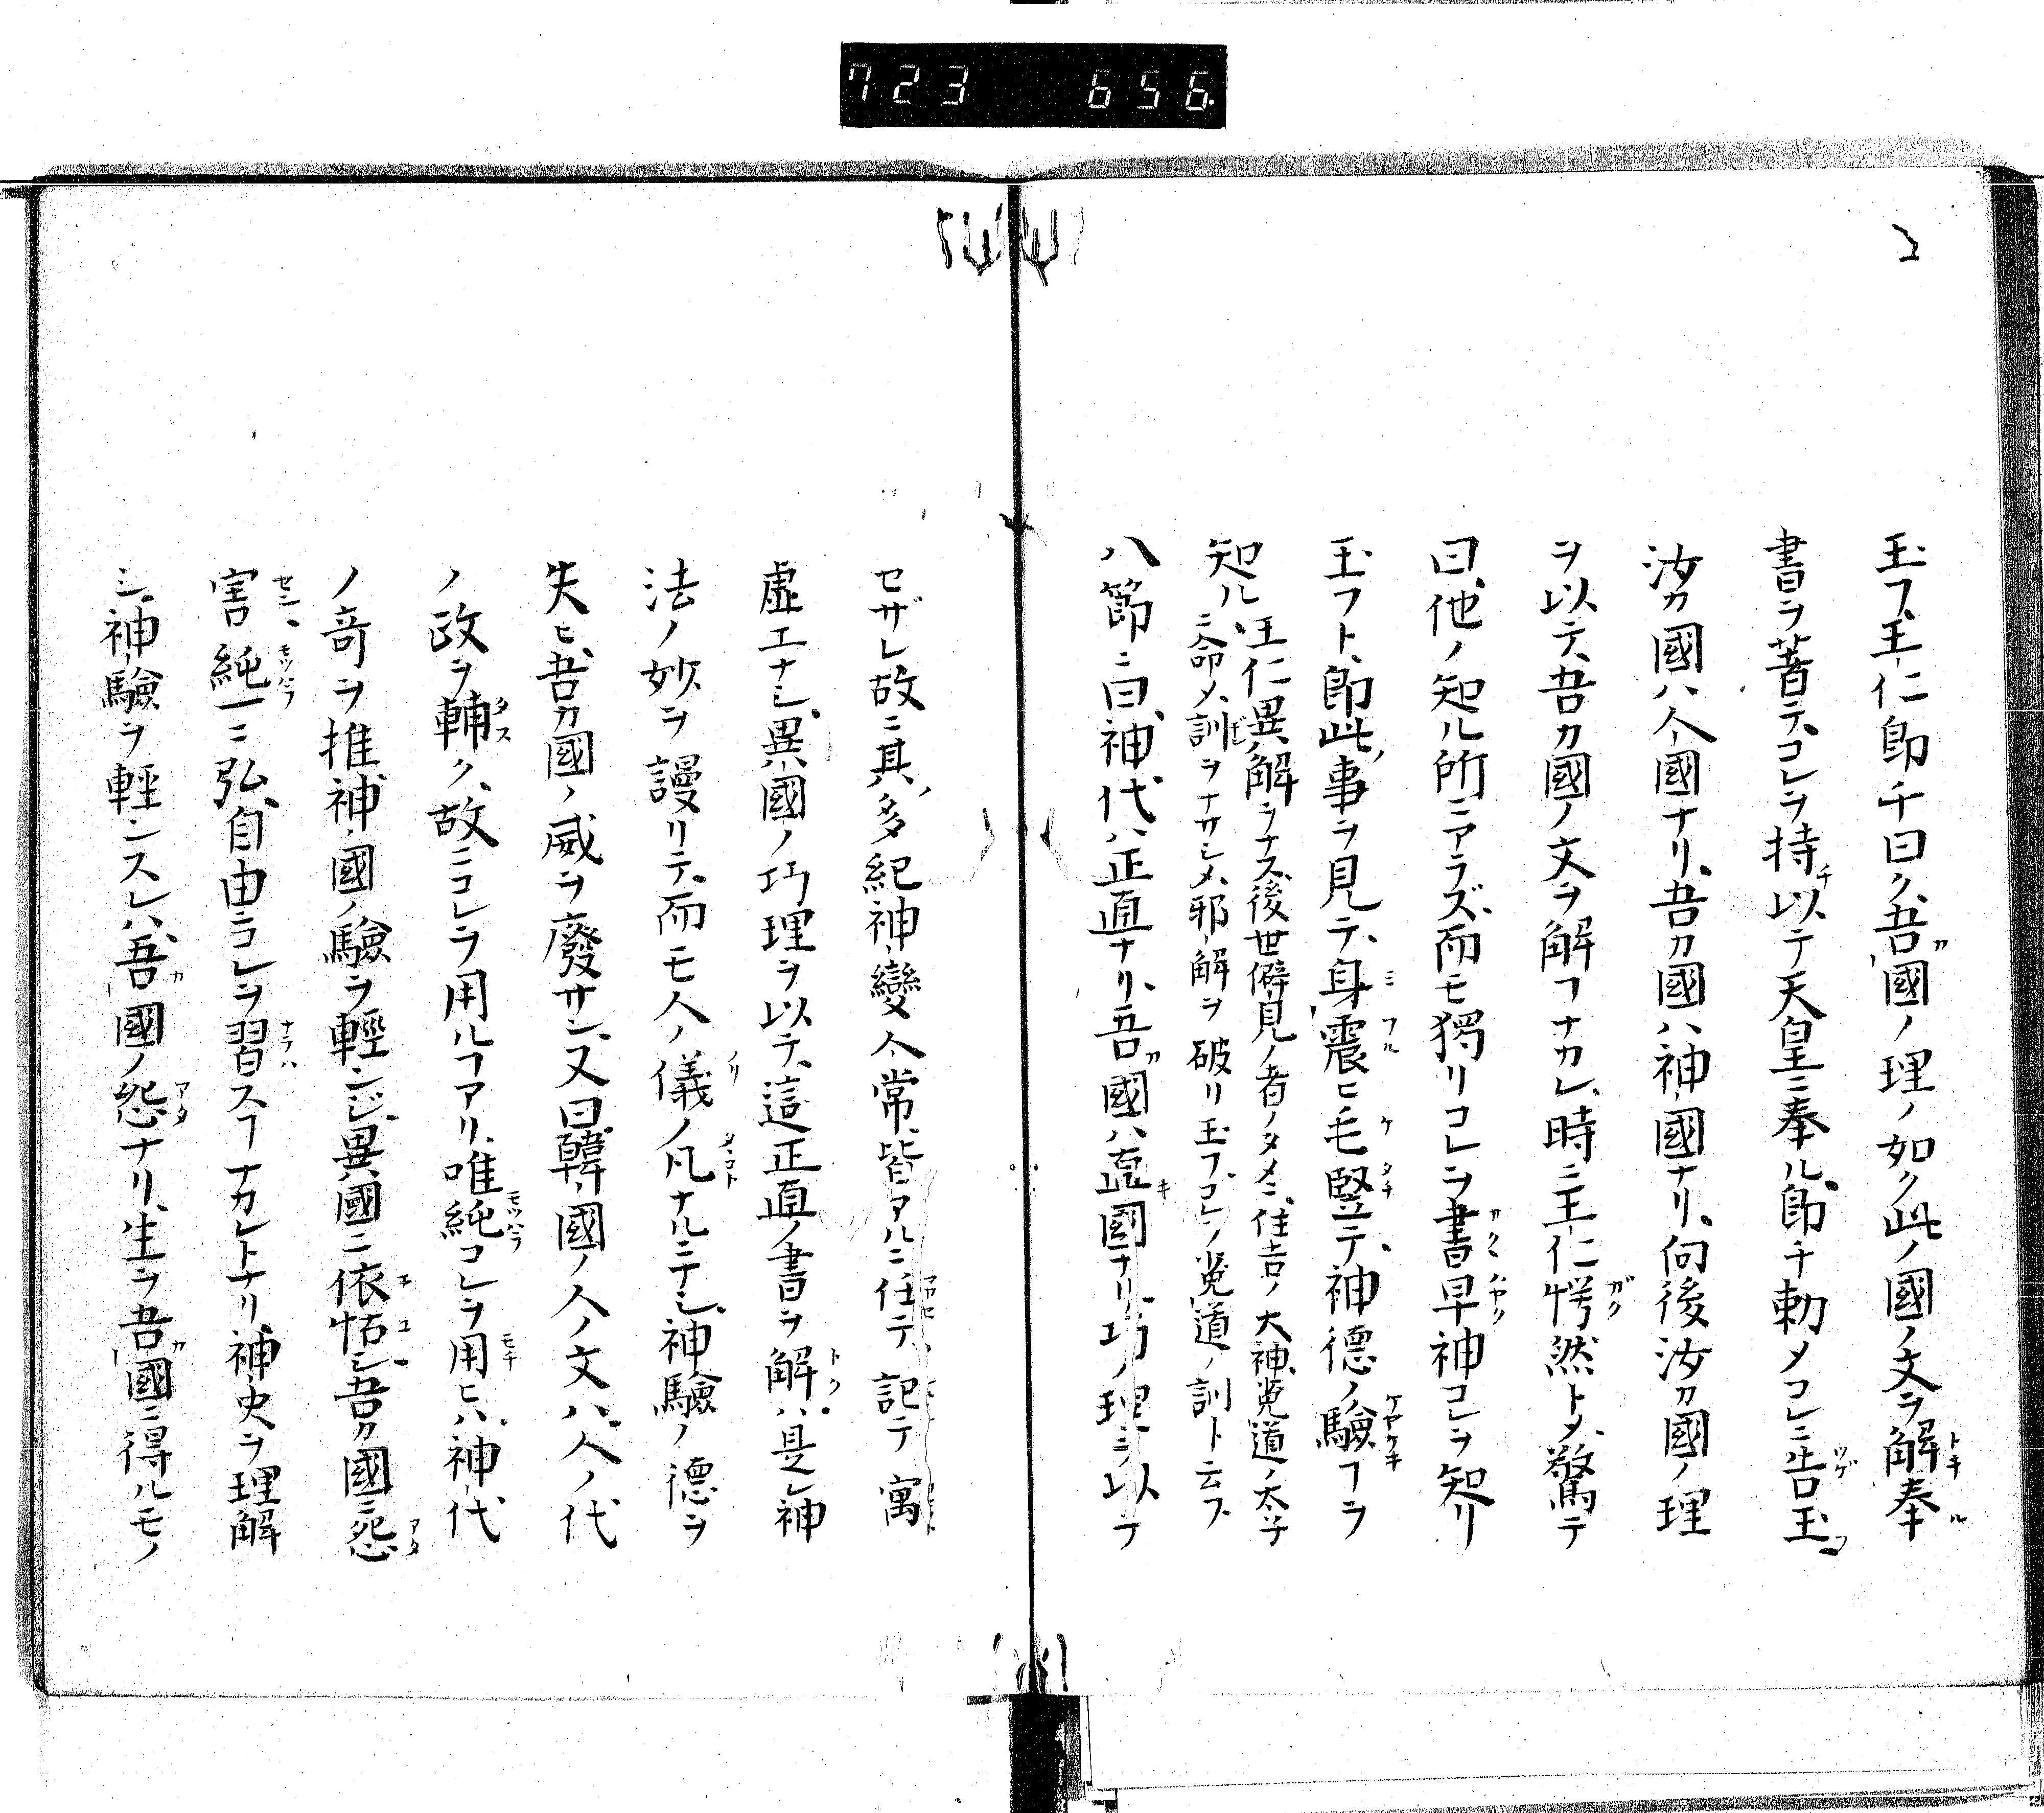 723 656
玉フ、王仁即チ曰ク、吾國ノ理ノ如ク此ノ國ノ文ヲ解奉
書ヲ著テ、コレヲ持以テ天皇ニ奉ル、即チ勅メコレニ告玉フ
汝カ國ハ人國ナリ、吾カ國ハ神國ナリ、向後汝カ國ノ理
ヲ以テ、吾カ國ノ文ヲ解フナカレ、時ニ王仁愕然トメ、驚テ
曰、他ノ知ル所ニアラズ、而モ獨リコレヲ書早神コレヲ知リ
玉フト、即此ノ事ヲ見テ、身震ヒ毛竪テ、神德ノ驗フヲ
知ル、王仁異解ヲナス、後世僻見ノ者ノタメニ、住吉ノ大神、菟道ノ太子
ニ命メ、訓ヲナサシメ、邪解ヲ破リ玉フ、コレヲ菟道ノ訓ト云フ
八節ニ曰、神代ハ正直ナリ、吾國ハ直國ナリ、巧ノ理ヲ以テ
セザレ故ニ其ノ多紀神變人常、皆アルニ任テ、記テ寓
虚エナシ、異國ノ巧理ヲ以テ、這正直ノ書ヲ解ハ、是レ神
法ノ妙ヲ謾リテ、而モ人ノ儀ノ凡ナルニテシ、神驗ノ德ヲ
失ヒ、吾カ國ノ威ヲ廢サン、又曰、韓國ノ人ノ文ハ、人ノ代
ノ政ヲ輔ク、故ニコレヲ用ルフアリ、唯純コレヲ用ヒハ、神代
ノ奇ヲ推神國ノ驗ヲ輕ンジ、異國ニ依怙シ、吾カ國ニ怨
害セン、純一ニ弘、自由ニコレヲ習スフナカレトナリ、神史ヲ理解
シ、神驗ヲ輕ンスレハ、吾國ノ怨ナリ、生ヲ吾國ニ得ルモノ